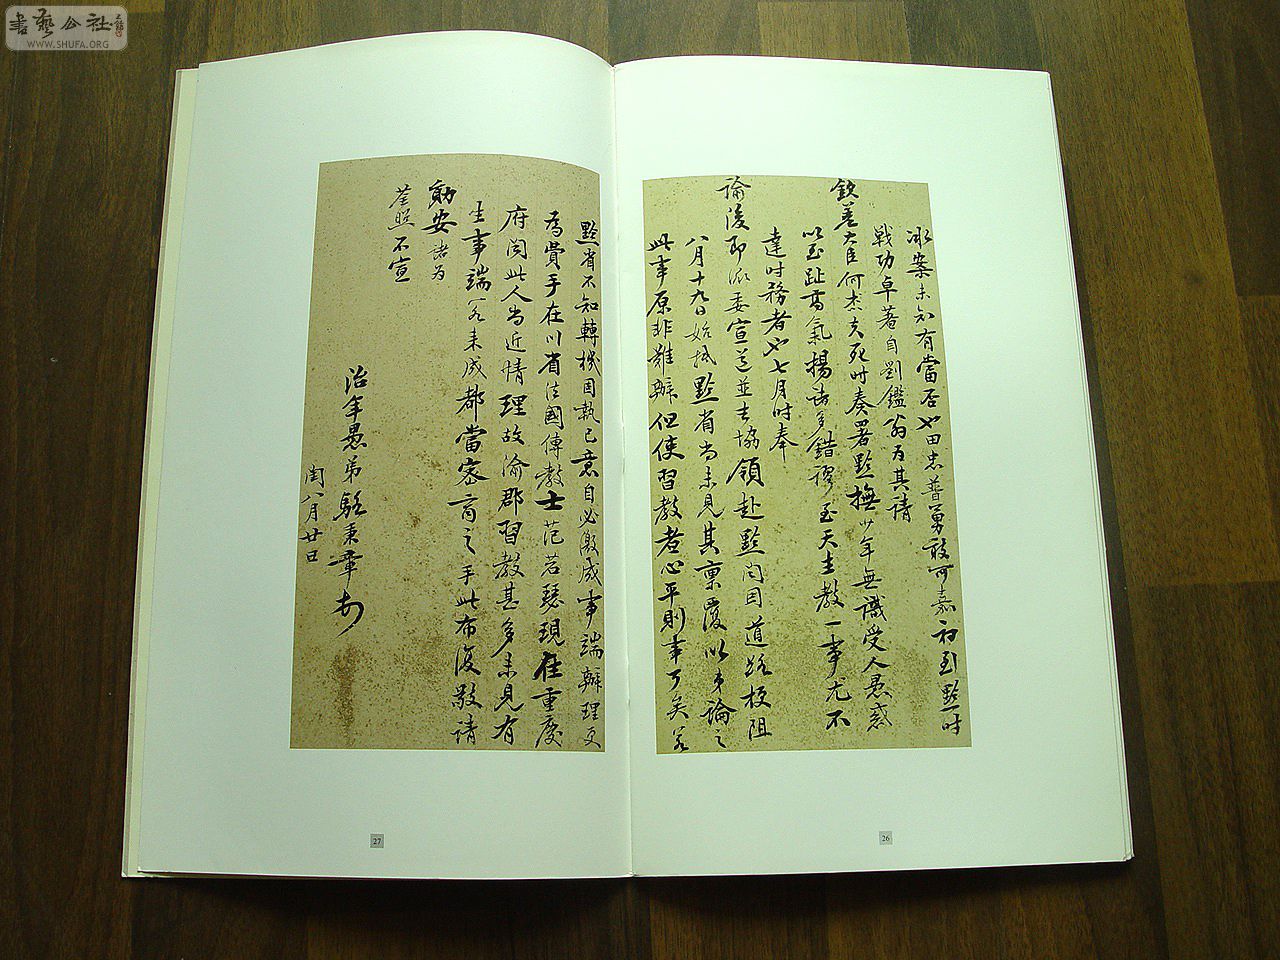 書藝公社
WWW.SHUFA.ORG
冰案未知有當否也田忠普勇敢可嘉初到黔時
戰功卓著自劉鑑翁為其請
欽差大臣何杰夫死時奏署黔撫少年無識受人愚惑
以至趾高氣揚諸多錯謬至天主教一事尤不
達時務者也七月時奉
諭後即派委宣道並去協領赴黔閱因道路梗阻
八月十九日始抵黔省尚未見其稟覆以弟論之
此事原非難辦但使習教者心平則事了矣若
26
黔省不知轉機固執己意自必激成事端辦理更
為費手在川省法國傳教士范若瑟現在重慶
府閱此人尚近情理故渝郡習教甚多未見有
生事端若來成都當密商之手此布復敬請
勛安諸為
荃照不宣
治年愚弟駱秉章
閏八月廿日
27